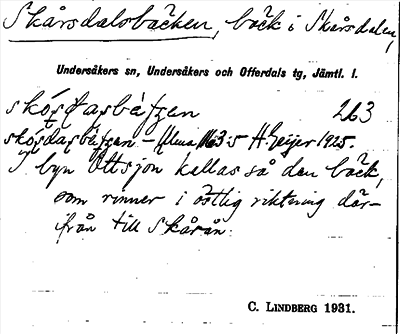 Skårsdalsbäcken, bäck i Skårsdalen,
Undersåkers sn, Undersåkers och Offerdals tg, Jämtl. l.
263
H. Geijer 1925.
I byn Ottsjön kallas så den bäck,
som rinner i östlig riktning där-
från till Skårån.
C. LINDBERG 1931.